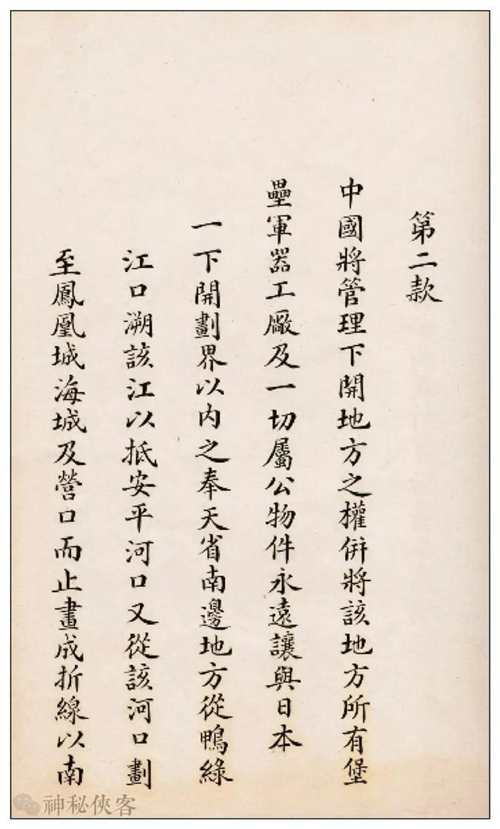 第二款
中國將管理下開地方之權併將該地方所有堡
壘軍器工廠及一切屬公物件永遠讓與日本
一下開劃界以内之奉天省南邊地方從鴨綠
江口溯該江以抵安平河口又從該河口劃
至鳳凰城海城及營口而止畫成折線以南
神秘俠客